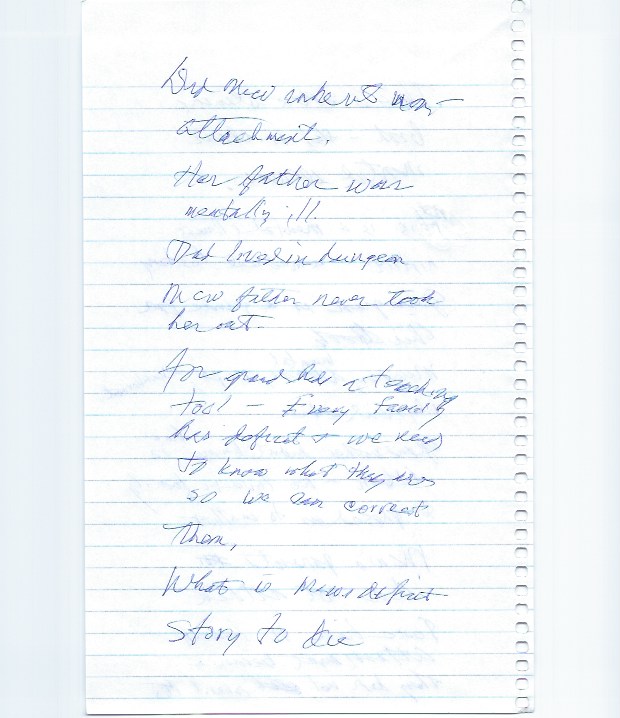 Did Mew inherit non-
attachment.
Her father was
mentally ill.
Dad lived in dungeon
Mew father never took
her out.
For grand kids a teaching
tool - Every family
has deficit & we need
to know what they are
so we can correct
them,
What is Mews deficit
Story to die